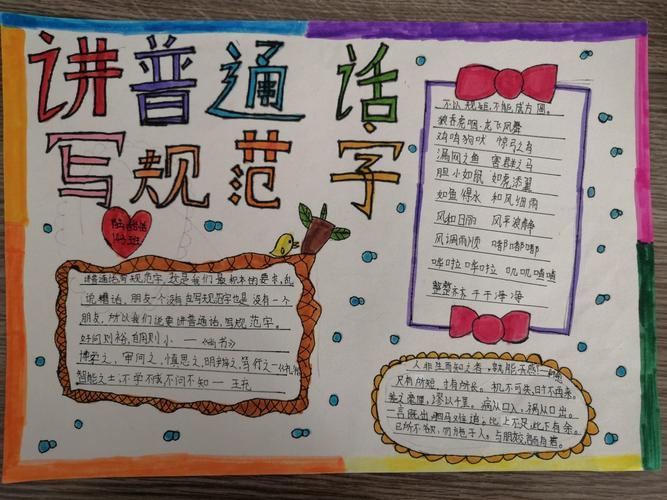 讲普通话
写规范字
143班
讲普通话,写规范字,这是我们最根本的要求,乱
说糟话,朋友一个没有,乱写规范字也是没有一个
朋友,所以我们说要讲普通话,写规范字。
好问则裕,自用则小 —《尚书》
博柔之,审问之,慎思之,明辨之,笃行之一《礼
智能之士,不学不成,不问不知 — 王充
不以规矩,不能成方圆。
狼吞虎咽、龙飞凤舞
鸡鸣狗吠 惊弓之鸟
漏网之鱼 害群之马
胆小如鼠 如虎添翼
如鱼得水 和风细雨
风和日丽 风平波静
风调雨顺 嘟嘟嘟
哗啦哗啦 叽叽喳喳
整整齐齐 干干净净
人非生而知之者,孰能无惑
尺有所短,寸有所长。机不可失,时不再来。
差之毫厘,谬以千里。病从口入,祸从口出。
一言既出,驷马难追。比上不足,此下有余。
己所不欲,勿施于人。与朋